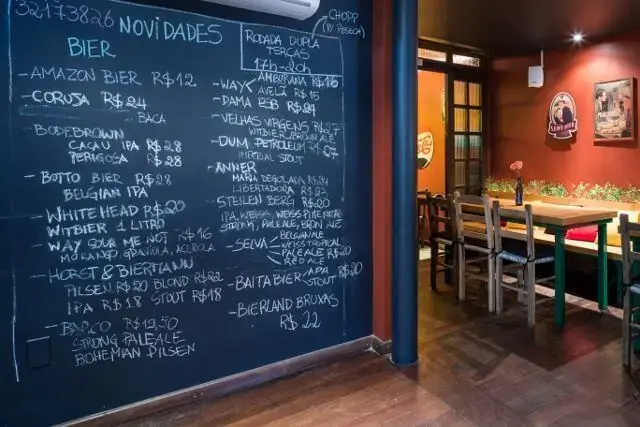 32173826
NOVIDADES
BIER
CHOPP
(P/ PESSOA)
RODADA DUPLA
TERÇAS
17h-20h
- AMAZON BIER R$12
- CORUJA R$24
BACA
- BODEBROWN
CACAU IPA R$28
PERIGOSA R$28
- BOTTO BIER R$28
BELGIAN IPA
- WHITEHEAD R$20
WITBIER 1 LITRO
- WAY SOUR ME NOT R$16
MORANGO, GRAVIOLA, ACEROLA
- HORST & BIERTMANN
PILSEN R$20 BLOND R$22
IPA R$18 STOUT R$18
- BARCO R$19,50
STRONG PALE ALE
BOHEMIAN PILSEN
- WAY AMBURANA R$16
AVELÃ R$15
- DAMA ESB R$24
- VELHAS VIRGENS
WITBIER
- DUM PETROLEUM
IMPERIAL STOUT
- ANNER
MARIA DEGOLADA R$24
LIBERTADORA
- STEILEN BERG R$20
IPA, WEISS, WEISS
STRONG, PALE ALE, BRON ALE
- SELVA
WEISS TROPICAL
PALE ALE R$20
RED ALE
- BAITA BIER APA R$20
STOUT
- BIERLAND BRUXAS
R$22